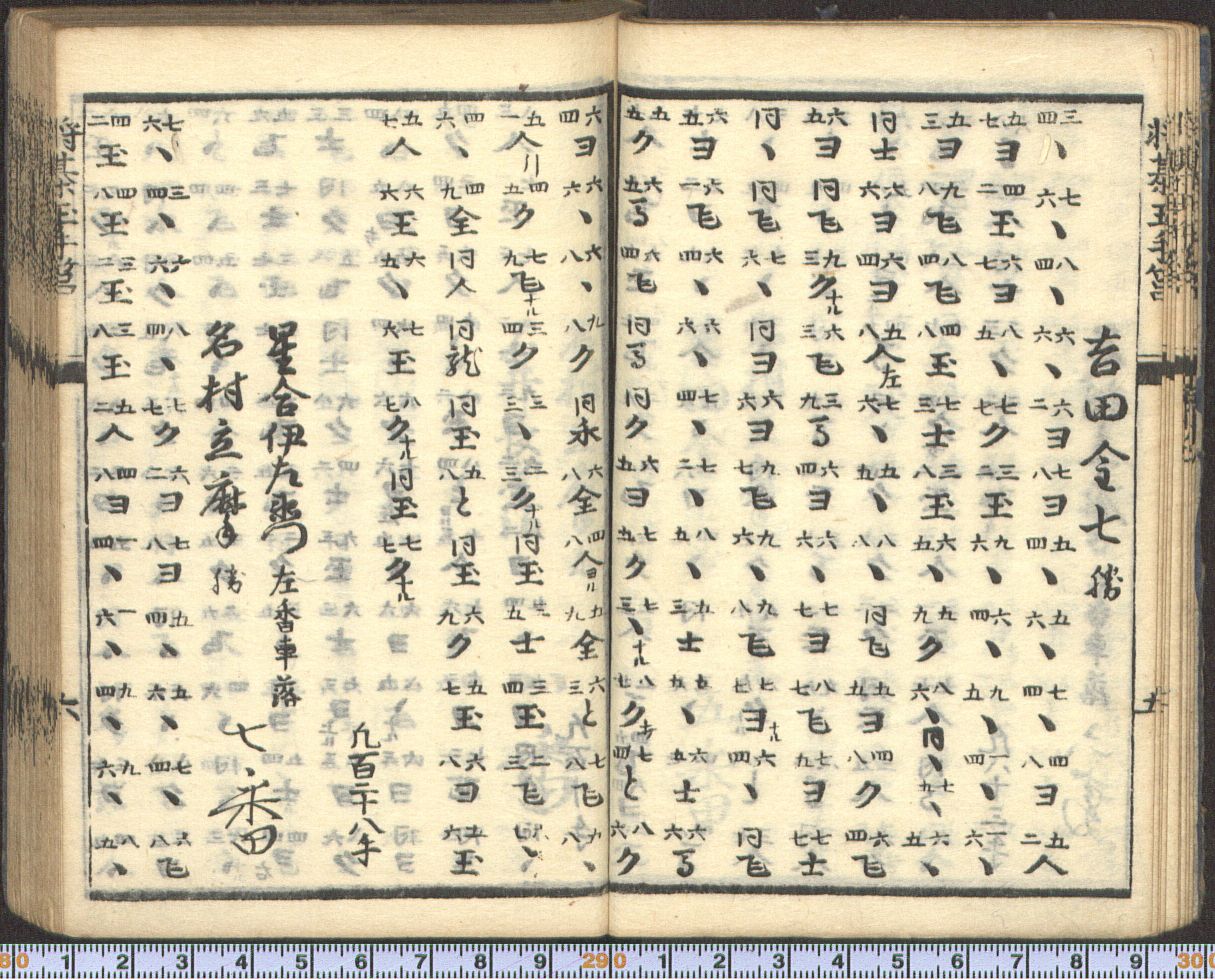 将棊玉手筥
吉田金七勝
三四、七六、八四、六六、六二ヨ七八ヨ五四、五六、七四、四八ヨ五二人
五七ヨ四二玉六七ヨ八五、七七ク三二玉九六、六四、九五、一四、一六、
五三ヨ九八飞八四飞四八玉七三士三八玉六五、九九ク八六、同、六五、
同士六六ヨ六八ヨ五八人左七六、五五、八八、同飞五五ヨ四八ク六四飞
六五ヨ同飞九三クナル六三飞三九馬六四ヨ六六、七七ヨ八七飞七九ヨ七七士
同、同飞七六、同ヨ六六ヨ九七飞九六、九八飞七七ヨナル六四、同飞
六五ヨ六一飞六四、六六、七四、七二、八五、五三士五五、六五士六六馬
五五ク六五馬六四飞同馬同ク六五ヨ七五ク七三、ナル八七クナル七四と八六ク
六四ヨ六六、六八、九八ク同永六八全四八人ヨル五九全六三と七八飞九八、
五三人引四五ク七九飞ナル三四ク三三、二三クナル同玉五士三四玉二三飞
四六、四九全同人同龍同玉五八と同玉六九ク五七玉六八ヨ五六玉
五七人六六玉六五、七六玉八七クナル同玉七七クナル
凡百二十八手
星合伊左衛門左香車落
名村立摩勝
七、禾田
七六、三四、六六、八四、七七ク六二ヨ七八ヨ五四、五六、七四、六八飞
四二玉四八玉三二玉三八玉五二人四八ヨ一四、一六、九四、九六、八五、
六